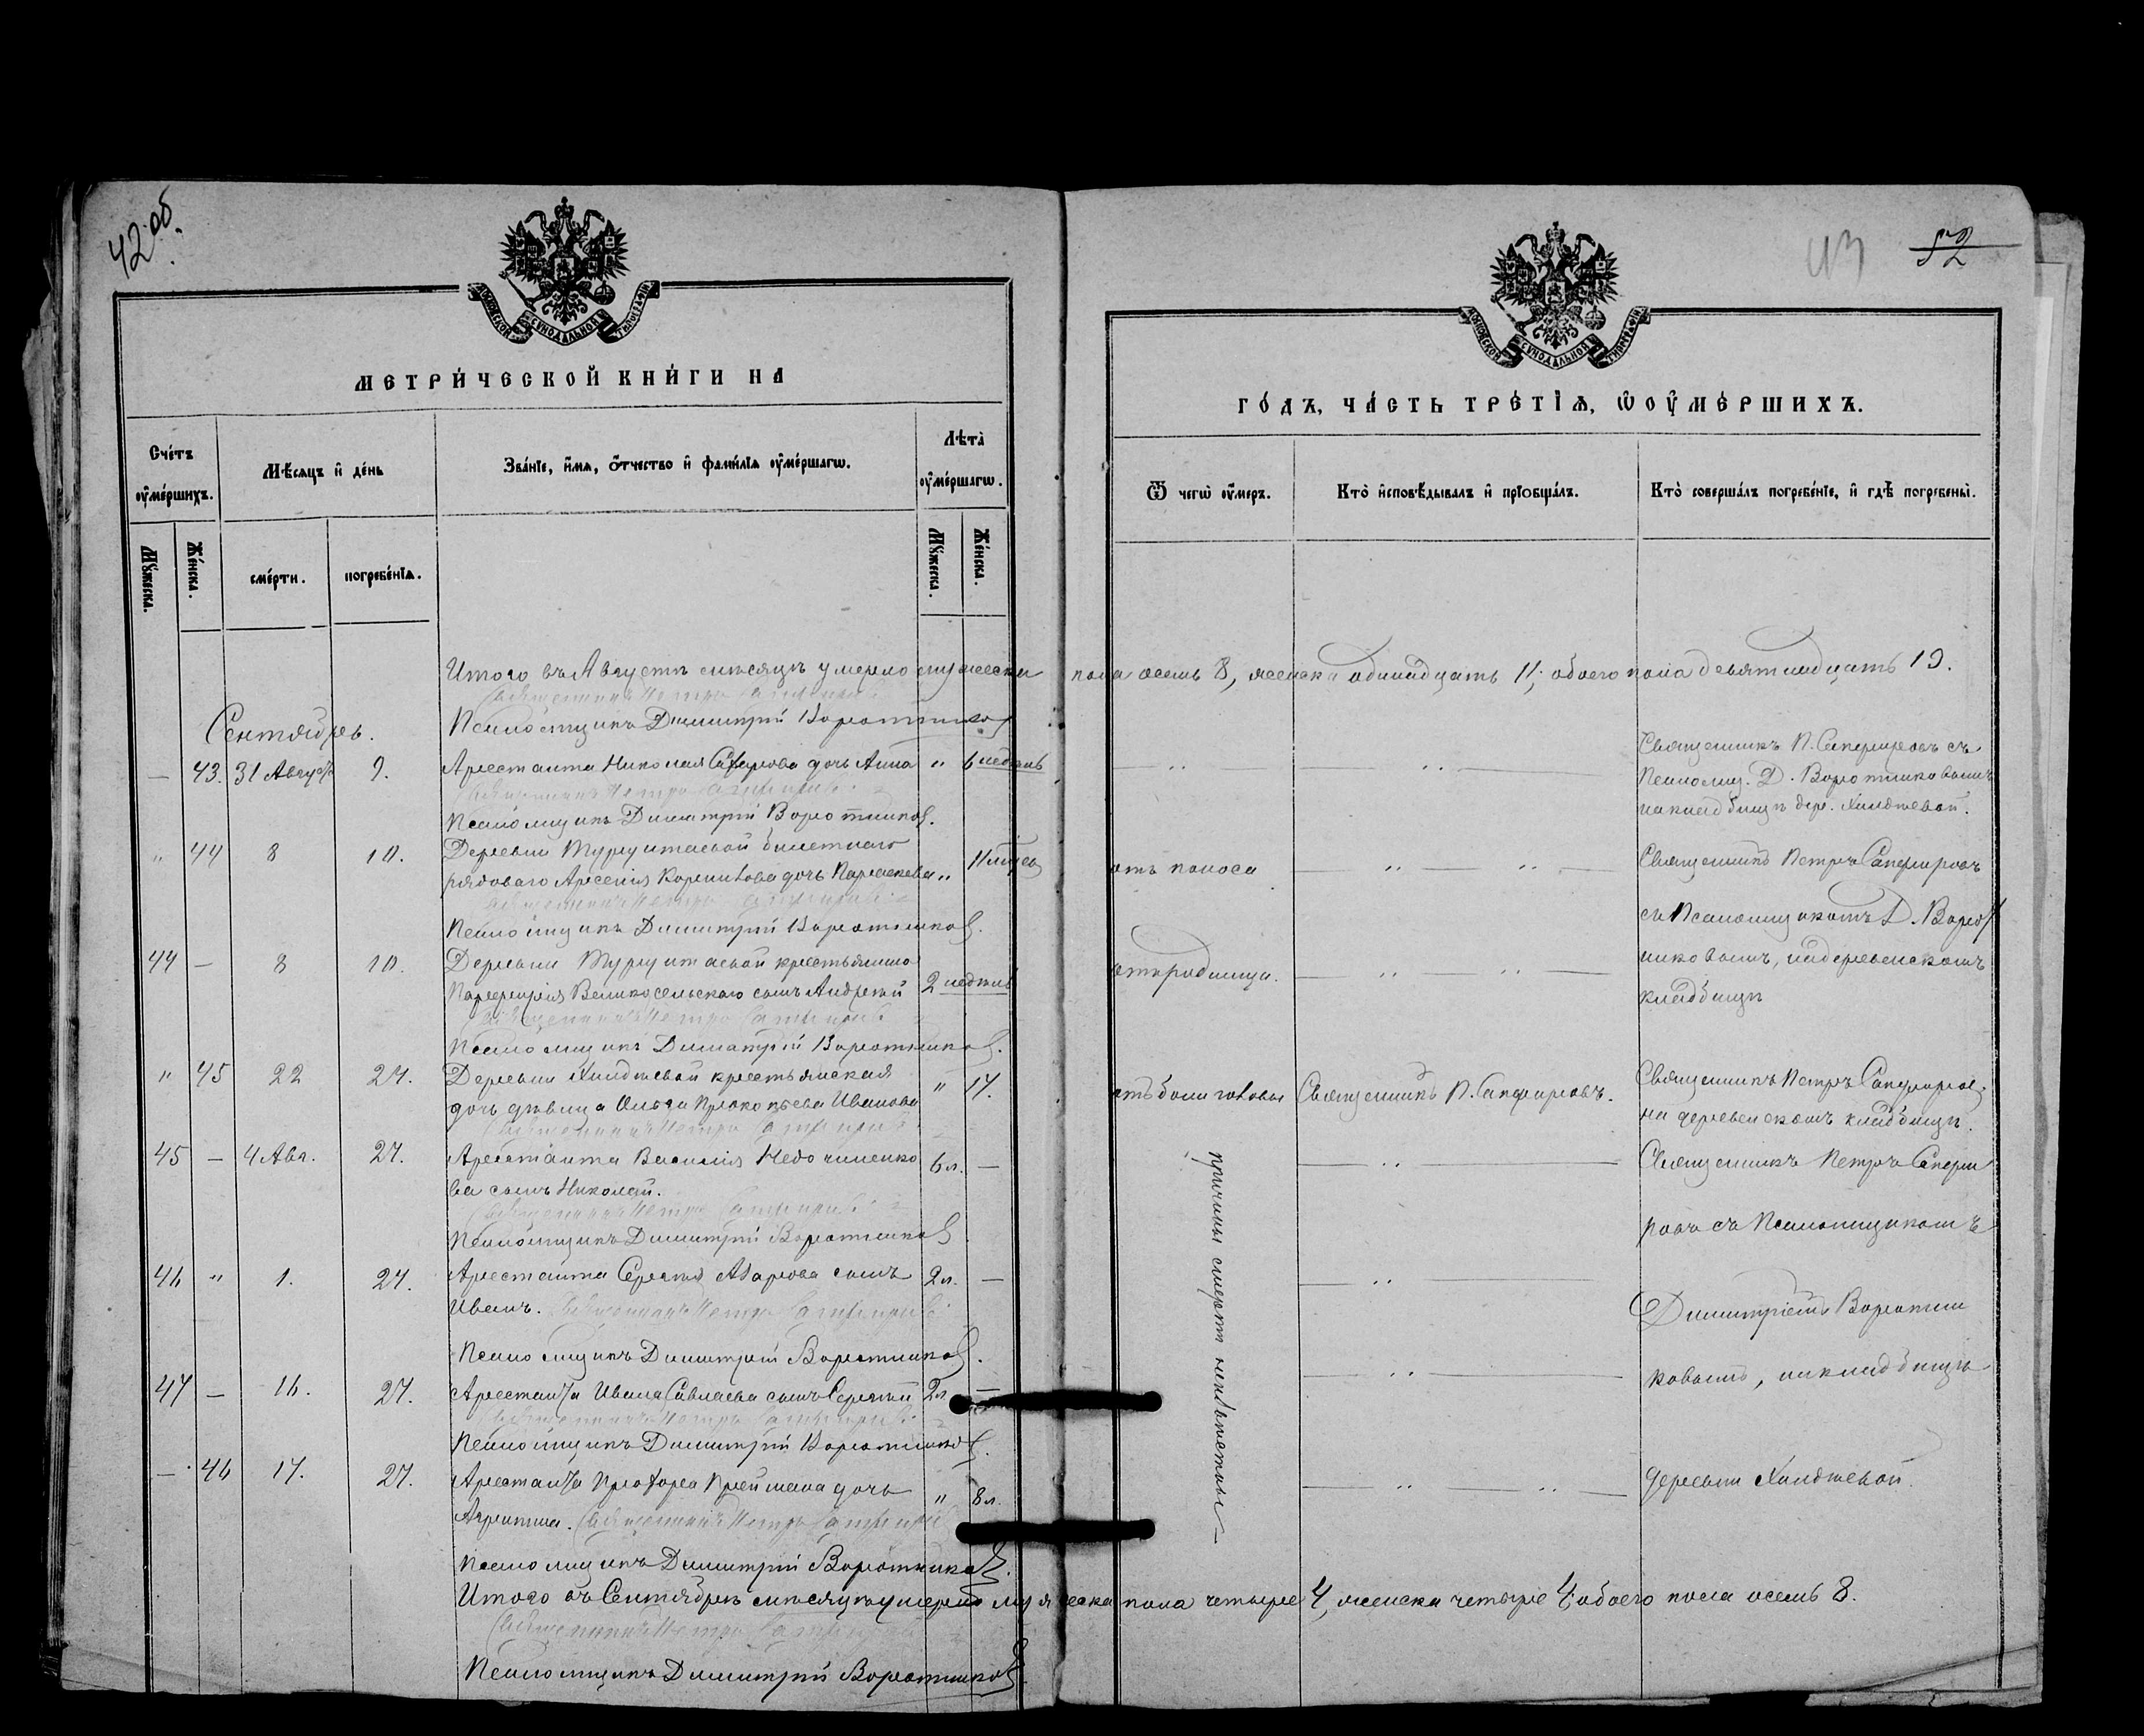 42 об.
МОСКОВСКОЙ СѴНОДАЛЬНОЙ ТИПОГРАФІИ
МЕТРИ́ЧЕСКОЙ КНИ́ГИ НА
Сче́тъ оу҆ме́ршихъ.
Мѣ́сяцъ и҆ де́нь
Зва́нїе, и҆́мя, ѻ҆́тчество и҆ фами́лїя оу҆ме́ршагѡ.
Лѣта̀ оу҆ме́ршагѡ.
Мꙋ́жеска.
Же́нска.
сме́рти.
погребе́нїя.
Мꙋ́жеска.
Же́нска.
Итого въ Августѣ мѣсяцѣ умерло мужеска
Священникъ Петръ Сапфировъ
Сентябрь.
Псаломщикъ Димитрій Воротниковъ
— 43. 31 Августа 9. Арестанта Николая дочь Анна " 6 недѣль
Священникъ Петръ Сапфировъ
Псаломщикъ Димитрій Воротниковъ.
" 44 8 10. Деревни билетнаго
рядоваго Арсенія дочь Параскева " 11 мѣсяц
Священникъ Петръ Сапфировъ
Псаломщикъ Димитрій Воротниковъ.
44 — 8 10. Деревни крестьянина
Порфирія Великосельскаго сынъ Андрей 2 недѣль
Священникъ Петръ Сапфировъ
Псаломщикъ Димитрій Воротниковъ.
" 45 22 27. Деревни крестьянская " 17.
дочь дѣвица Ольга Прокопьева Иванова
Священникъ Петръ Сапфировъ
45 — 4 Авг. 27. Арестанта Василія Недочиненко 6 л. —
ва сынъ Николай.
Священникъ Петръ Сапфировъ
Псаломщикъ Димитрій Воротниковъ
46 " 1. 27. Арестанта Сергѣя сынъ 2 л. —
Иванъ. Священникъ Петръ Сапфировъ
Псаломщикъ Димитрій Воротниковъ.
47 — 16. 27. Арестанта Ивана сынъ Сергѣй 2 л. —
Священникъ Петръ Сапфировъ
Псаломщикъ Димитрій Воротниковъ.
— 46 17. 27. Арестанта дочь " 8 л.
Священникъ Петръ Сапфировъ
Псаломщикъ Димитрій Воротниковъ.
Итого въ Сентябрѣ мѣсяцѣ умерло мужеска
Священникъ Петръ Сапфировъ
Псаломщикъ Димитрій Воротниковъ.
43
52
МОСКОВСКОЙ СѴНОДАЛЬНОЙ ТИПОГРАФІИ
ГО́ДЪ, ЧА́СТЬ ТРЕ́ТЇѦ, Ѡ ОУ҆МЕ́РШИХЪ.
Ѿ чегѡ̀ оу҆́меръ.
Кто̀ и҆сповѣ́дывалъ и҆ прїѡбща́лъ.
Кто̀ соверша́лъ погребе́нїе, и҆ гдѣ̀ погребены̀.
пола осемь 8, женска одинадцать 11; обоего пола девятнадцать 19.
Священникъ П. Сапфировъ съ
Псаломщ. Д. Воротниковымъ
на кладбищѣ дер.
отъ поноса
Священникъ Петръ Сапфировъ
съ Псаломщикомъ Д. Ворот
никовымъ, на деревенскомъ
кладбищѣ
отъ родимца.
отъ боли головы Священникъ П. Сапфировъ.
Священникъ Петръ Сапфировъ
на деревенскомъ кладбищѣ.
причины смерти неизвѣстны —
Священникъ Петръ Сапфи
ровъ съ Псаломщикомъ
Димитріемъ Воротни
ковымъ, на кладбищѣ
деревни
пола четыре 4, женска четыре 4; обоего пола осемь 8.